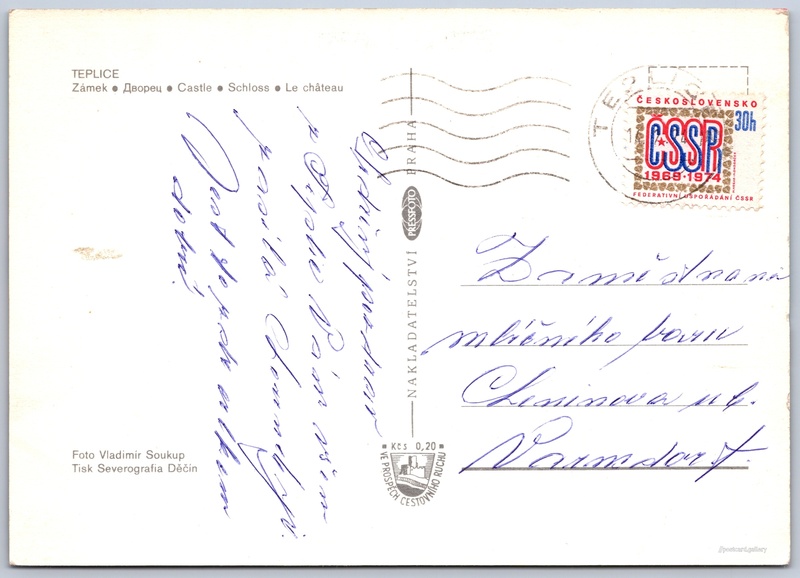 TEPLICE
Zámek ● Дворец ● Castle ● Schloss ● Le château
Srdečný pozdrav
z Teplic Vám všem
posílá
Foto Vladimír Soukup
Tisk Severografia Děčín
NAKLADATELSTVÍ PRESSFOTO PRAHA
Kčs 0,20
VE PROSPĚCH CESTOVNÍHO RUCHU
TEPLICE
ČESKOSLOVENSKO
30h
ČSSR
1969·1974
FEDERATIVNÍ USPOŘÁDÁNÍ ČSSR
Zaměstnanci
mléčného baru
Leninova ul.
Varnsdorf
@postcard.gallery